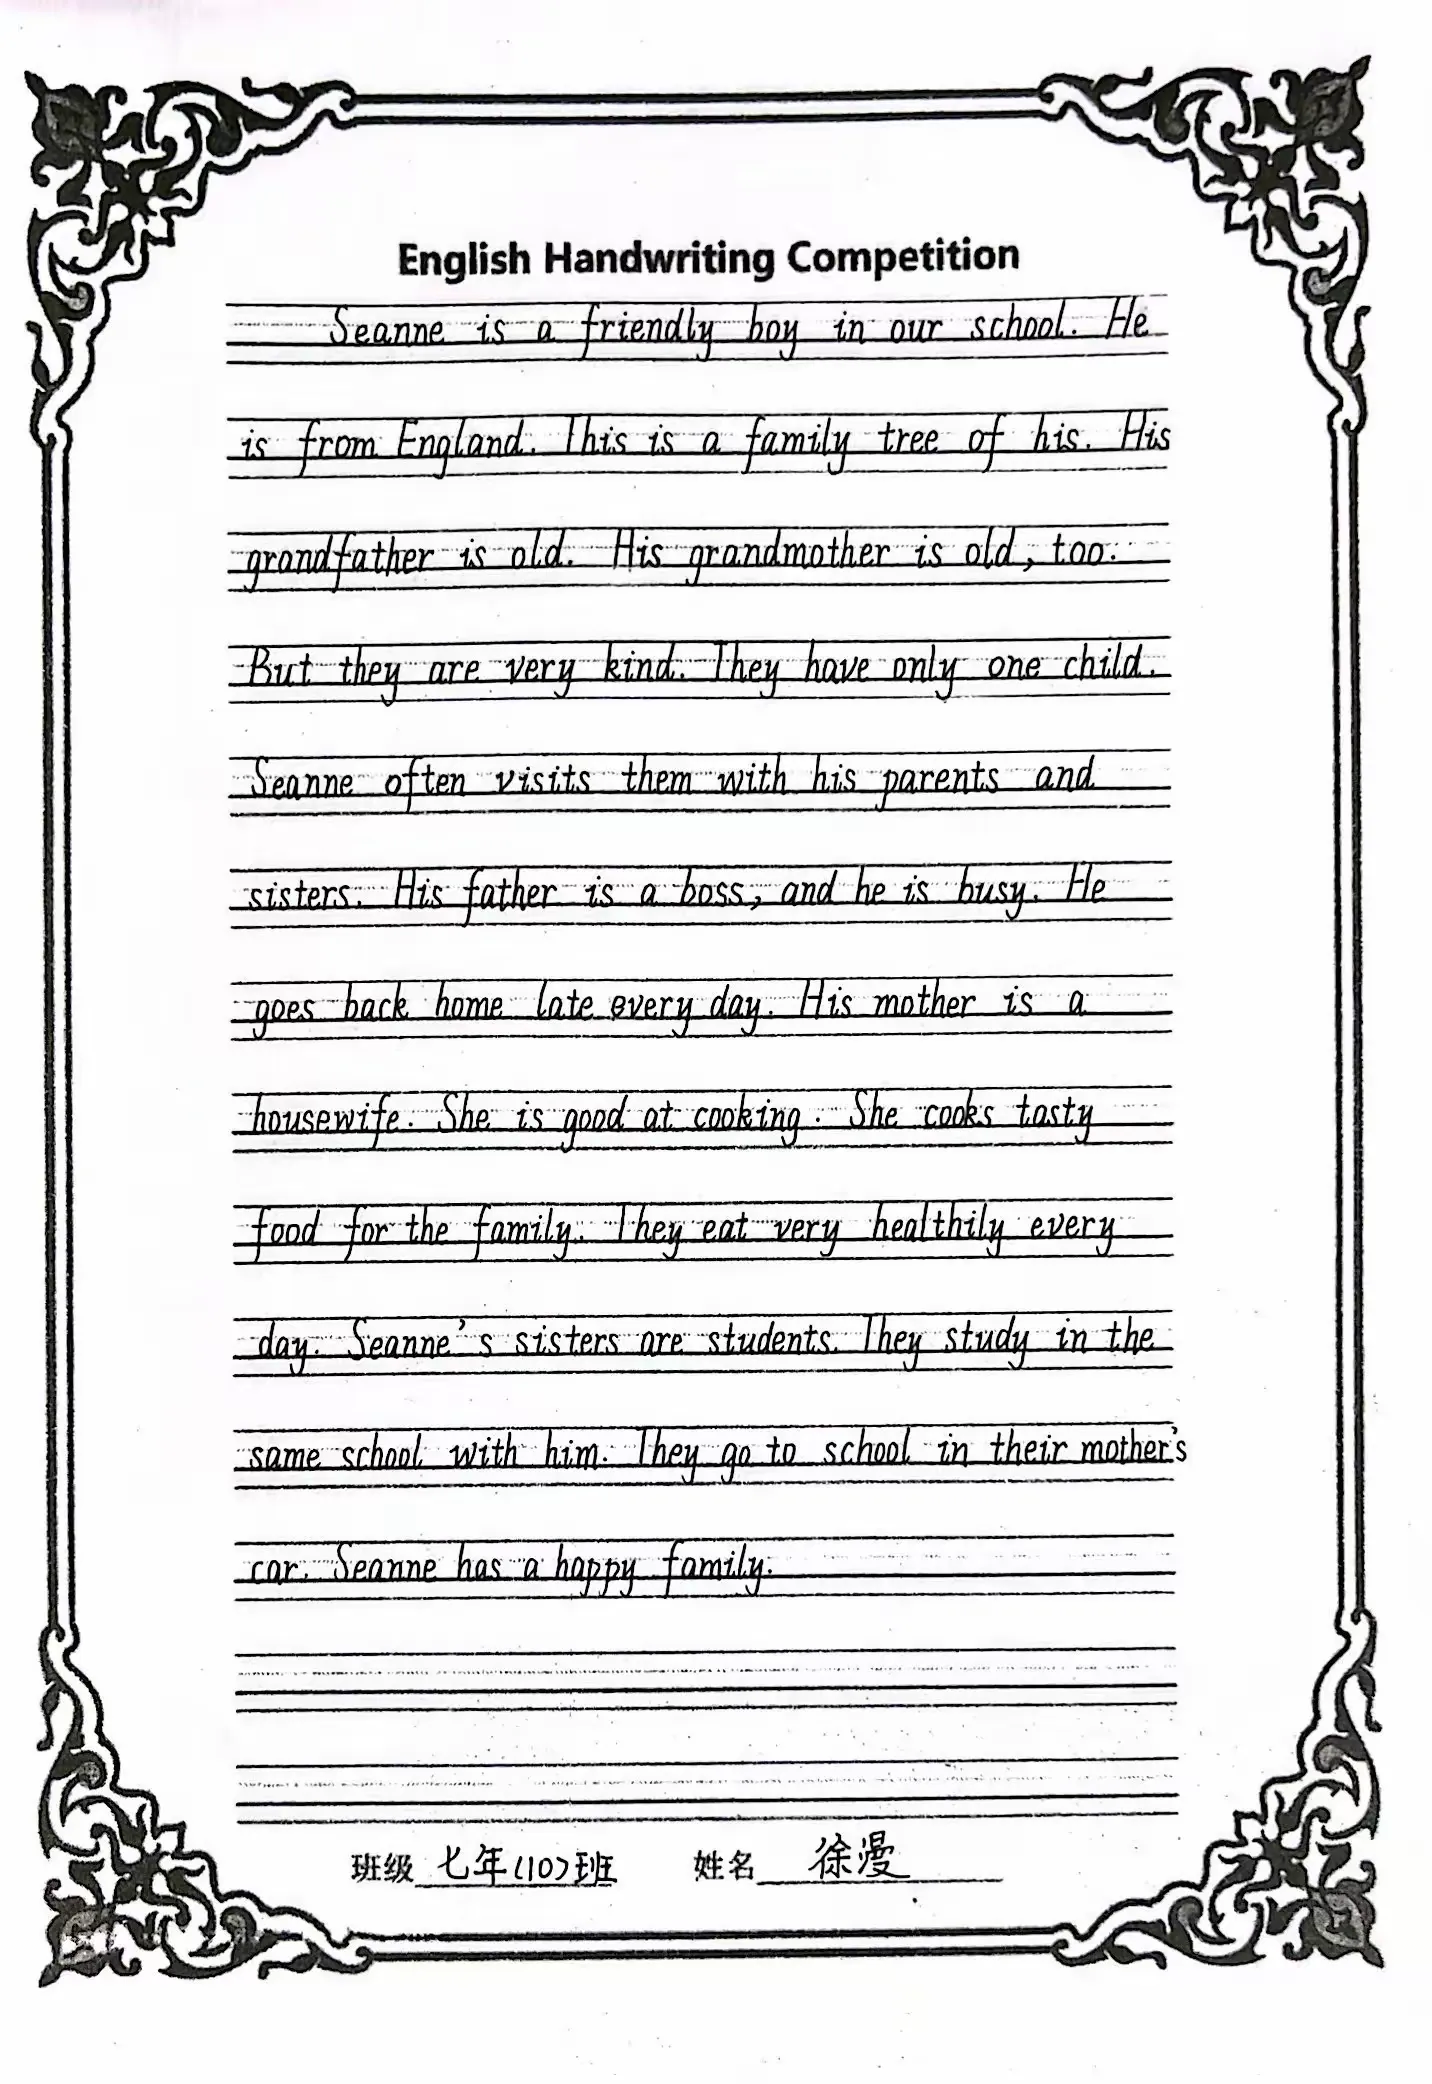 English Handwriting Competition
Seanne is a friendly boy in our school. He
is from England. This is a family tree of his. His
grandfather is old. His grandmother is old, too.
But they are very kind. They have only one child.
Seanne often visits them with his parents and
sisters. His father is a boss, and he is busy. He
goes back home late every day. His mother is a
housewife. She is good at cooking. She cooks tasty
food for the family. They eat very healthily every
day. Seanne's sisters are students. They study in the
same school with him. They go to school in their mother's
car. Seanne has a happy family.
班级 七年(10)班 姓名 徐漫